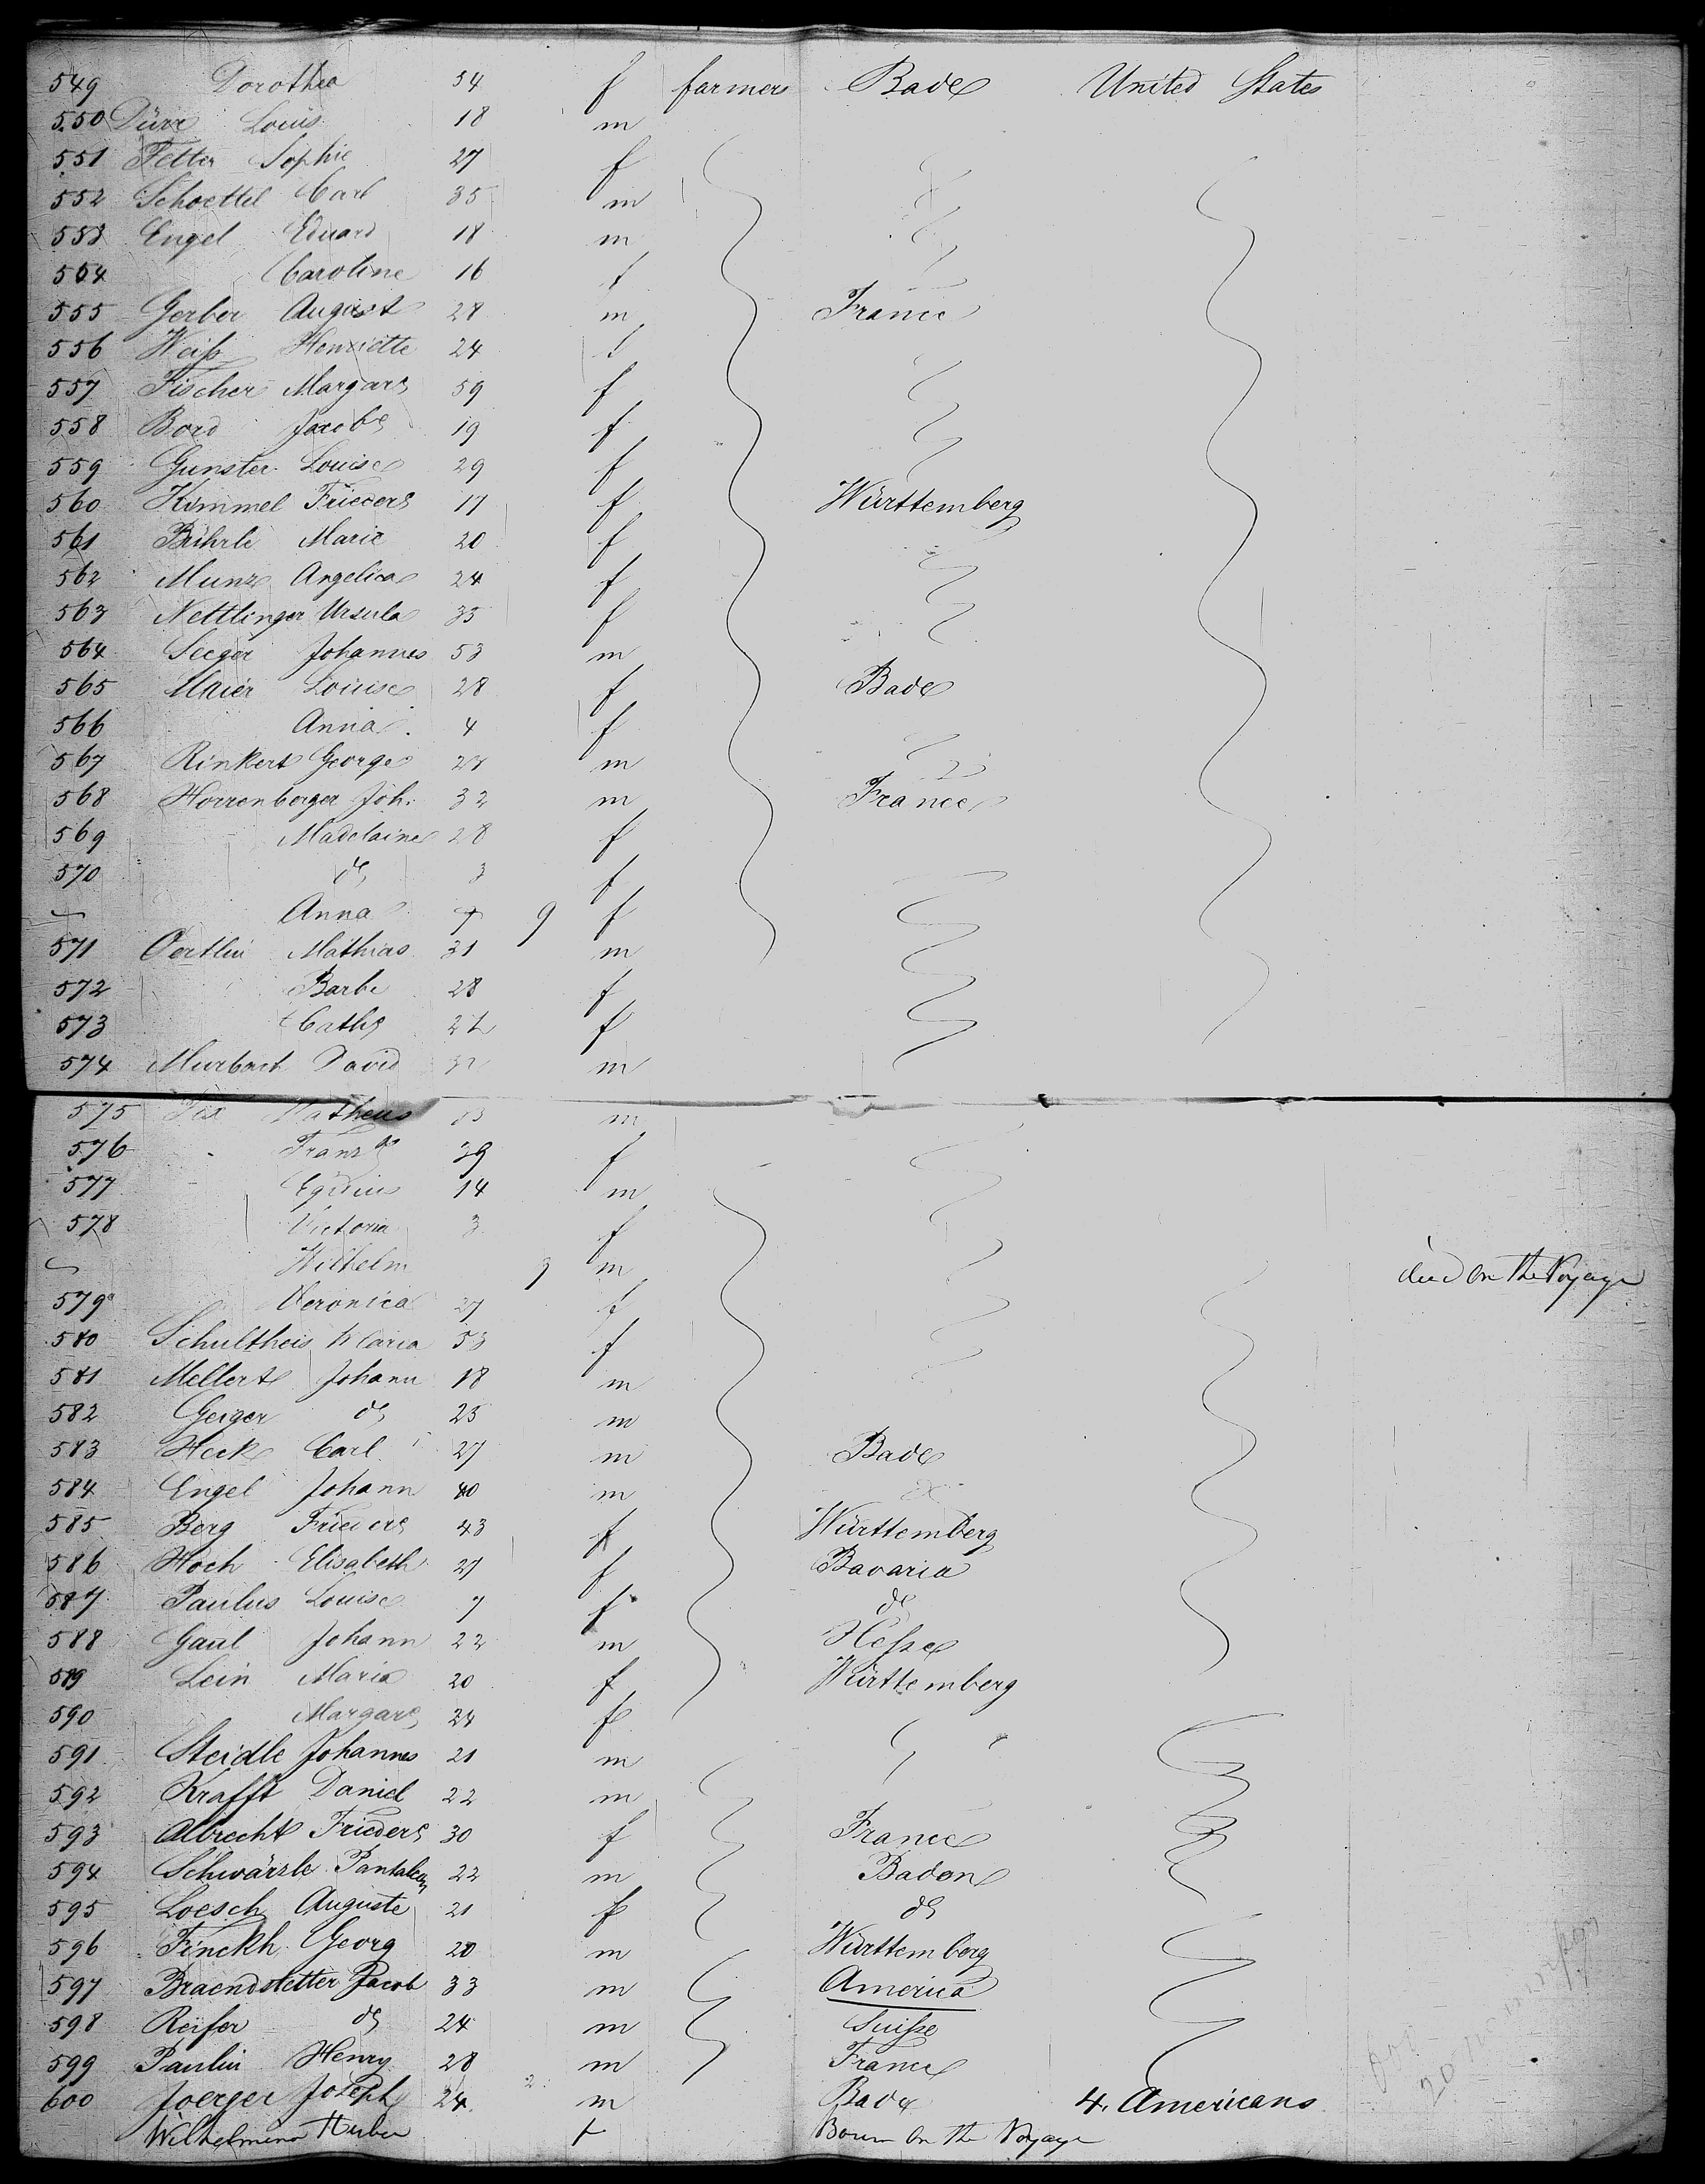 549 Dorothea 54 f farmers Bade United States
550 Dürr Louis 18 m
551 Fetter Sophie 27 f
552 Schoettel Carl 35 m
553 Engel Eduard 18 m
554 Caroline 16 f
555 Gerber August 28 m France
556 Weiß Henriette 24 f
557 Fischer Margar 59 f
558 Bord Jacobe 19 f
559 Gunster Louise 29 f
560 Kimmel Frieder 17 f Württemberg
561 Bührle Marie 20 f
562 Munz Angelica 24 f
563 Nettlinger Ursula 35 f
564 Seeger Johannes 53 m
565 Maier Louise 28 f Bade
566 Anna 4 f
567 Rinkert George m
568 Horrenberger Joh. 32 m France
569 Madelaine 28 f
570 do 3 f
Anna 9 f
571 Oertlin Mathias 31 m
572 Barbe 28 f
573 Cath f
574 Murbach David m
575 Matheus m
576 Franz 39 f
577 14 m
578 Victoria 3 f
Wilhelm 3 m died on the Voyage
579 Veronica 27 f
580 Schultheis Maria 53 f
581 Mellert Johann 18 m
582 Geiger do 25 m
583 Heck Carl 27 m Bade
584 Engel Johann 40 m
585 Berg Frieder 43 f Württemberg
586 Hoch Elisabeth 27 f Bavaria
587 Paulus Louise 7 f do
588 Gaul Johann 22 m Heße
589 Lein Maria 20 f Württemberg
590 Margar 24 f
591 Steidle Johannes 21 m
592 Krafft Daniel 22 m
593 Albrecht Frieder 30 f France
594 Schwärzle Pantaleon 22 m Baden
595 Loesch Auguste 21 f do
596 Finckh Georg 20 m Württemberg
597 Braendstetter Jacob 33 m America
598 Reifer do 24 m Suiße
599 Paulin Henry 28 m France
600 Joerger Joseph 24 m Bade 4. Americans
Wilhelmina Huber f Born On the Voyage